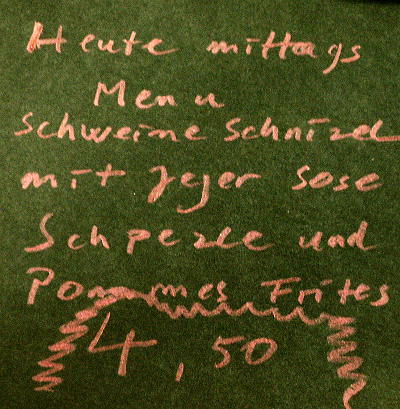 Heute mittags
Menu
Schweine Schnizel
mit Jeger Sose
Schpezle und
Pommes Frites
4,50